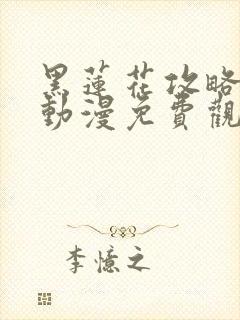 黑蓮花攻略
動漫免費觀
李憶之